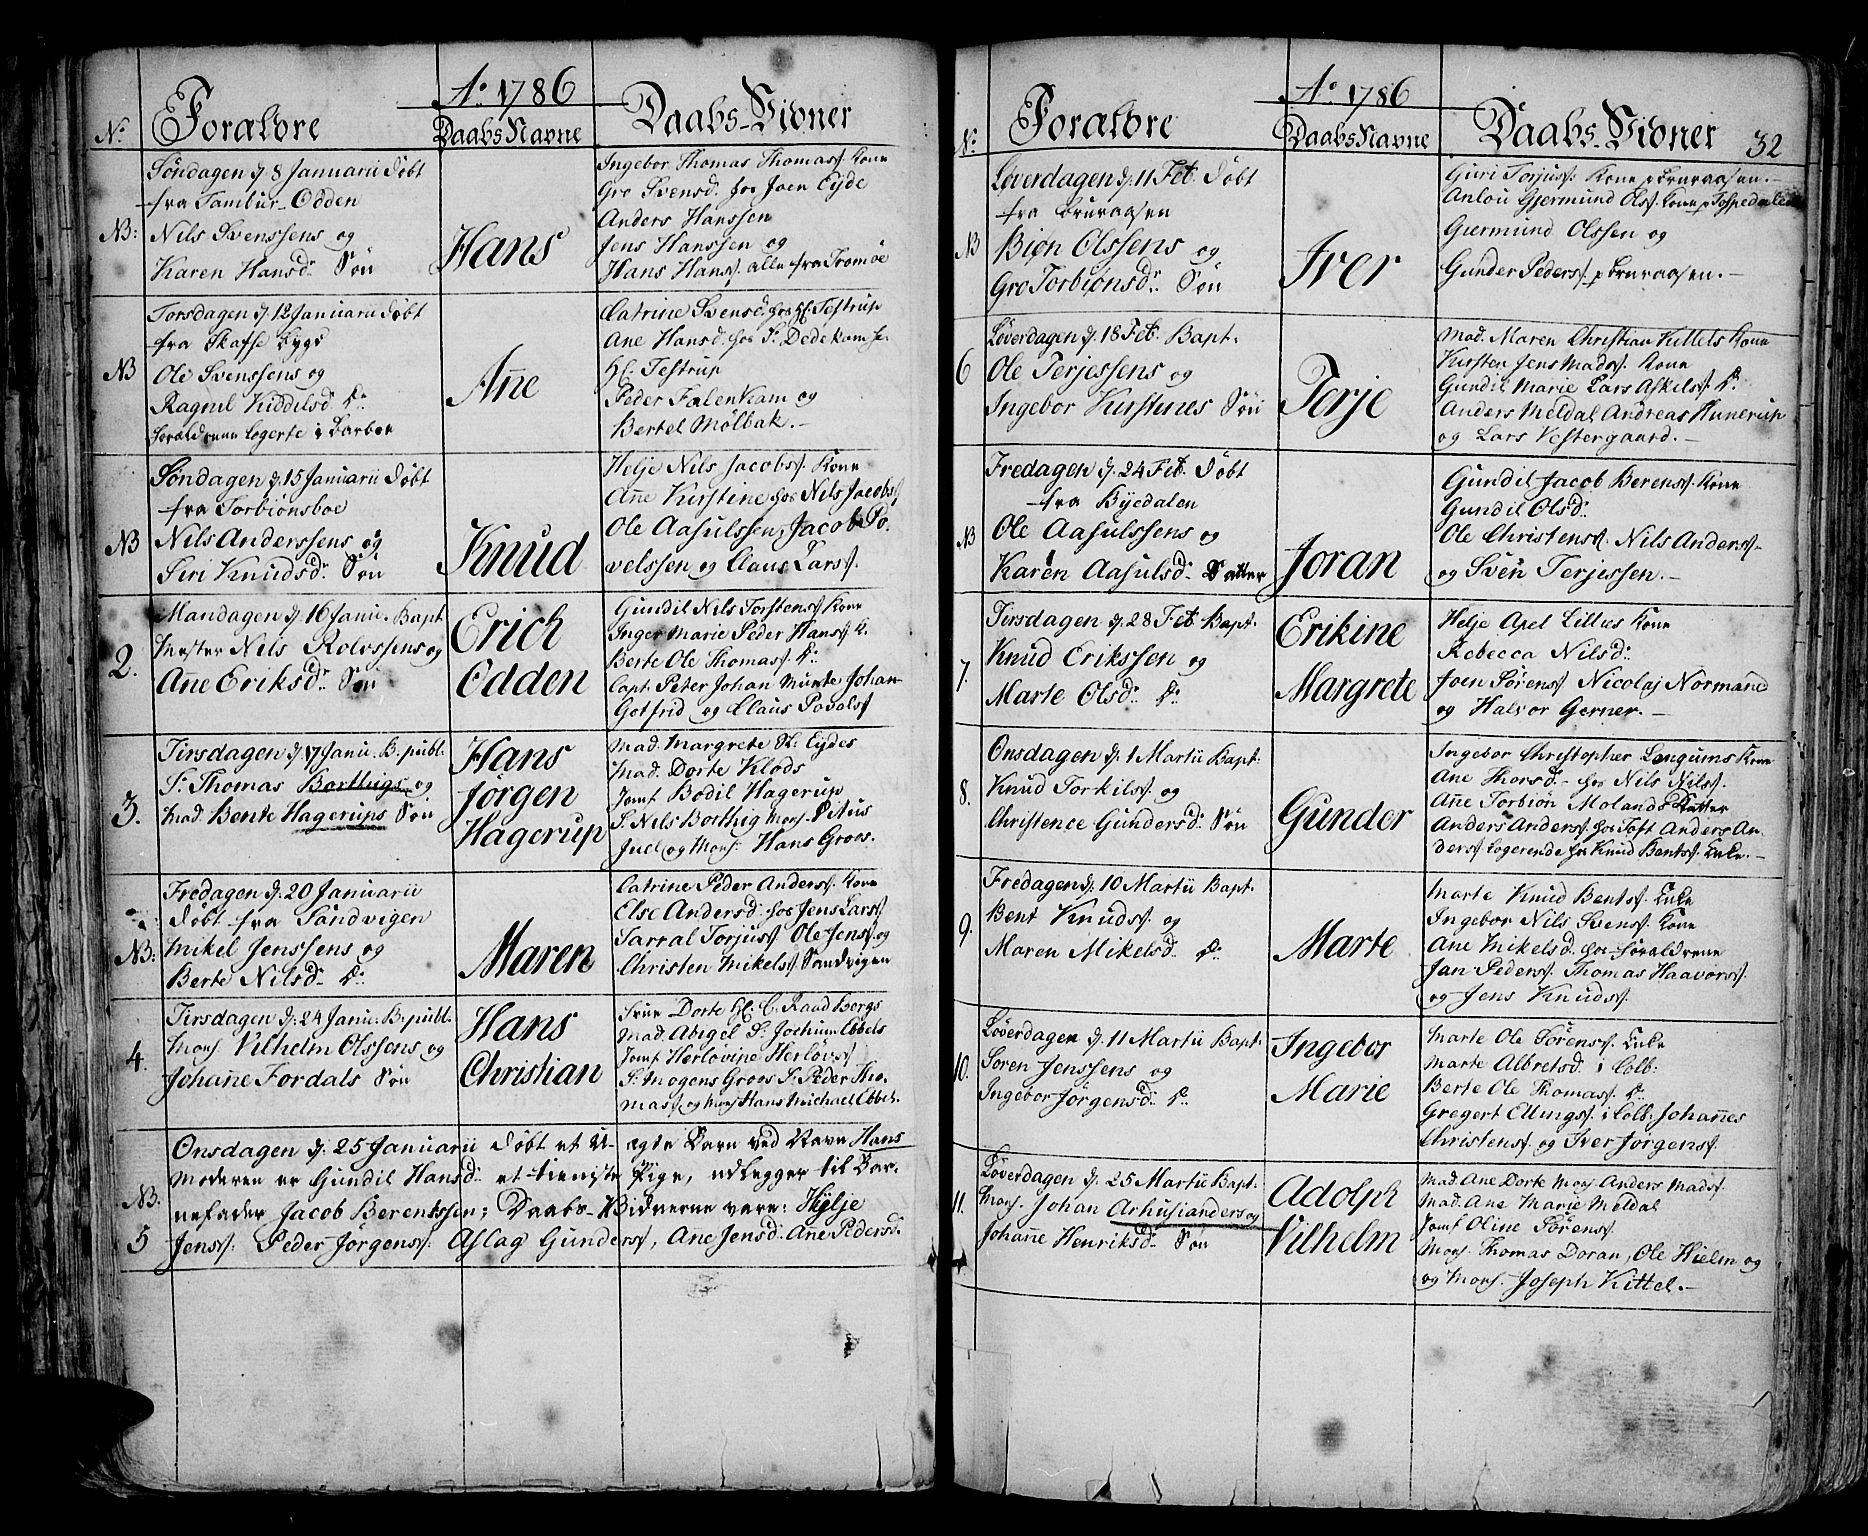 Ao 1786
No Forældre DaabsNavne Daabs-Vidner
Søndagen d. 8 Januarii døbt
fra Tambur-Odden
NB: Nils Svenssens og
Karen Hansdr Søn
Hans
Ingebor Thomas Thomass. Kone
Gro Svensd. hos Joen Eyde
Anders Hanssen
Jens Hanssen og
Hans Hanss. alle fra Tromøe
Torsdagen d. 12 Januarii døbt
fra Skafse Bygd
NB Ole Svenssens og
Ragnil Kiddilsd. Dr
Forældrene logerte i Barboe
Ane
Catrine Svensd. hos Hl. Testrup
Ane Hansd. hos S. Dedekam
Hl. Testrup
Peder Falenkam og
Bertel Mølbak.
Søndagen d. 15 Januarii døbt
fra Torbiønsboe
NB Nils Anderssens og
Siri Knudsdr Søn
Knud
Helje Nils Jacobss. Kone
Ane Kirstine hos Nils Jacobss.
Ole Aasulssen, Jacob Po-
velssen og Claus Larss.
Mandagen d. 16 Janu. Bapt
Mester Nils Rolvssens og
2. Ane Eriksdr Søn
Erich
Odden
Gundil Nils Torstens. Kone
Inger Marie Peder Hanss. K.
Berte Ole Thomass. Dr
Capt. Peter Johan Munte Johan
Gotfrid og Claus Povelss
Tirsdagen d. 17 Janu. B. publ.
S. Thomas Borthigs og
3. Mad. Bente Hagerups Søn
Hans
Jørgen
Hagerup
Mad. Margrete Sl. Eydes
Mad. Dorte Klods
Jomf Bodil Hagerup
S. Nils Borthig Mons. Vitus
Juel og Mons. Hans Groes.
Fredagen d. 20 Januarii
døbt fra Sandvigen
NB: Mikel Jenssens og
Berte Nilsd. Dr
Maren
Catrine Peder Anderss. Kone
Else Andersd. hos Jens Larss.
Tarral Torjuss Ole Jenss og
Christen Mikelss Sandvigen
Tirsdagen d. 24 Janu. B. publ.
Mons. Vilhelm Olssens og
4. Johane Fordals Søn
Hans
Christian
Frue Dorte Hl. C. Raad Bergs
Mad. Abigel S. Jochum Ebbels
Jomf Herlovine Herløvss
S. Mogens Groes S. Peder Tho-
mass og Mons Hans Michael Ebbel.
Onsdagen d. 25 Januarii døbt et U- ægte Barn ved Navn Hans
Moderen er Gundil Hansd. et tieniste Pige, udlegger til Bar-
NB. nefader Jacob Berentssen; Daabs-Vidnerne vare: Kylje
5 Jenss: Peder Jørgenss: Aslag Gunderss, Ane Jensd. Ane Pedersd.
Ao 1786
No Forældre DaabsNavne Daabs-Vidner 32
Løverdagen d. 11 Feb. døbt
fra Bruraasen
NB Biøn Olssens og
Gro Torbiønsdr Søn
Iver
Guri Torjuss. Kone p Bruraasen.
Anlou Gjermund Olss. Kone p
Giermund Olssen og
Gunder Peders. p Bruraasen.
Løverdagen d. 18 Feb. Bapt.
6 Ole Terjessens og
Ingebor Kirstines Søn
Terje
Mad. Maren Christian Kittels Kone
Kirsten Jens Madss. Kone
Gundil Marie Lars Askelss Dr
Anders Meldal Andreas Hunerup
og Lars Vestergaard.
Fredagen d. 24 Feb. døbt
fra Byedalen
NB Ole Aasulssens og
Karen Aasulsd. Datter
Joran
Gundil Jacob Berenss. Kone
Gundil Olsdr
Ole Christenss. Nils Anderss.
og Sven Terjessen.
Tirsdagen d. 28 Feb Bapt.
7. Knud Erikssen og
Marte Olsdr Dr
Erikine
Margrete
Helje Apel Lillies Kone
Rebecca Nilsdr
Joen Sørens. Nicolaj Normand
og Halvor Gerner.
Onsdagen d. 1 Martii Bapt.
8. Knud Torkilss. og
Christence Gundersd. Søn
Gunder
Ingebor Christopher Lengums Kone
Ane Thorsd. hos Nils Nilss.
Ane Torbiøn Molands Datter
Anders Anderss. hos Toft Anders An-
derss Logerende hos Knud Bentss. Enke.
Fredagen d. 10 Martii Bapt.
9. Bent Knudss. og
Maren Mikelsd. Dr
Marte
Marte Knud Bentss. Enke
Ingebor Nils Svenss. Kone
Ane Mikelsd. hos Forældrene
Jan Pederss. Thomas Haavorss.
og Jens Knudss.
Løverdagen d. 11 Martii Bapt.
10. Søren Jenssens og
Ingebor Jørgensd. Dr
Ingebor
Marie
Marte Ole Sørenss. Enke
Marte Albretsd. i Colb:
Berte Ole Thomass. Dr
Gregert Ellingss. i Colb. Johanes
Christenss. og Iver Jørgenss.
Løverdagen d. 25 Martii Bapt.
11. Mons. Johan Arhusianders og
Johane Henriksd. Søn
Adolph
Vilhelm
Mad. Ane Dorte Mons. Anders Madss.
Mad. Ane Marie Meldal
Jomf Oline Sørenss.
Mons. Thomas Doran, Ole Hielm og
og Mons. Joseph Kittel.